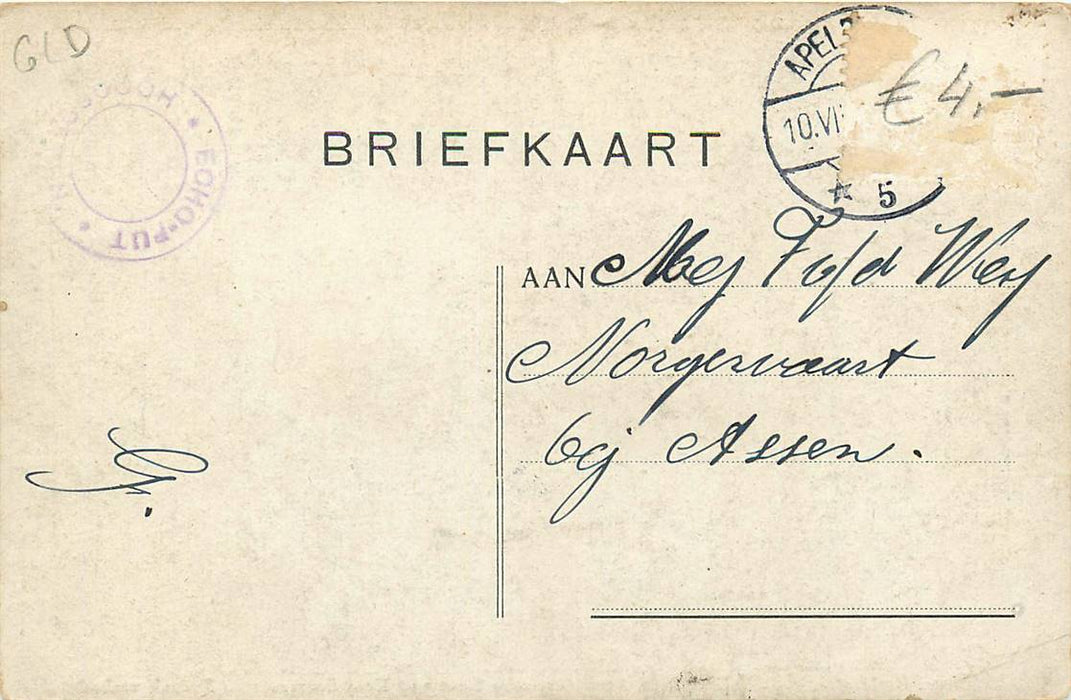 GLD
HOOG SOEREN * ECHO-PUT *
BRIEFKAART
APEL
10.VI
5
€ 4,-
AAN Mej F v/d Wey
Norgervaart
bij Assen.